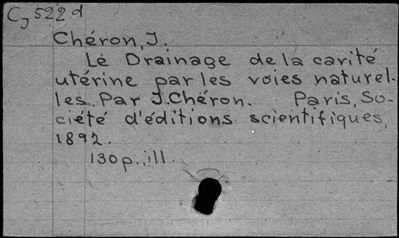 Cj 522d
Chéron, J.
Le Drainage de la cavité
utérine par les voies naturel-
les. Par J. Chéron. Paris, So-
ciété d'éditions scientifiques,
1892.
130 p., ill.